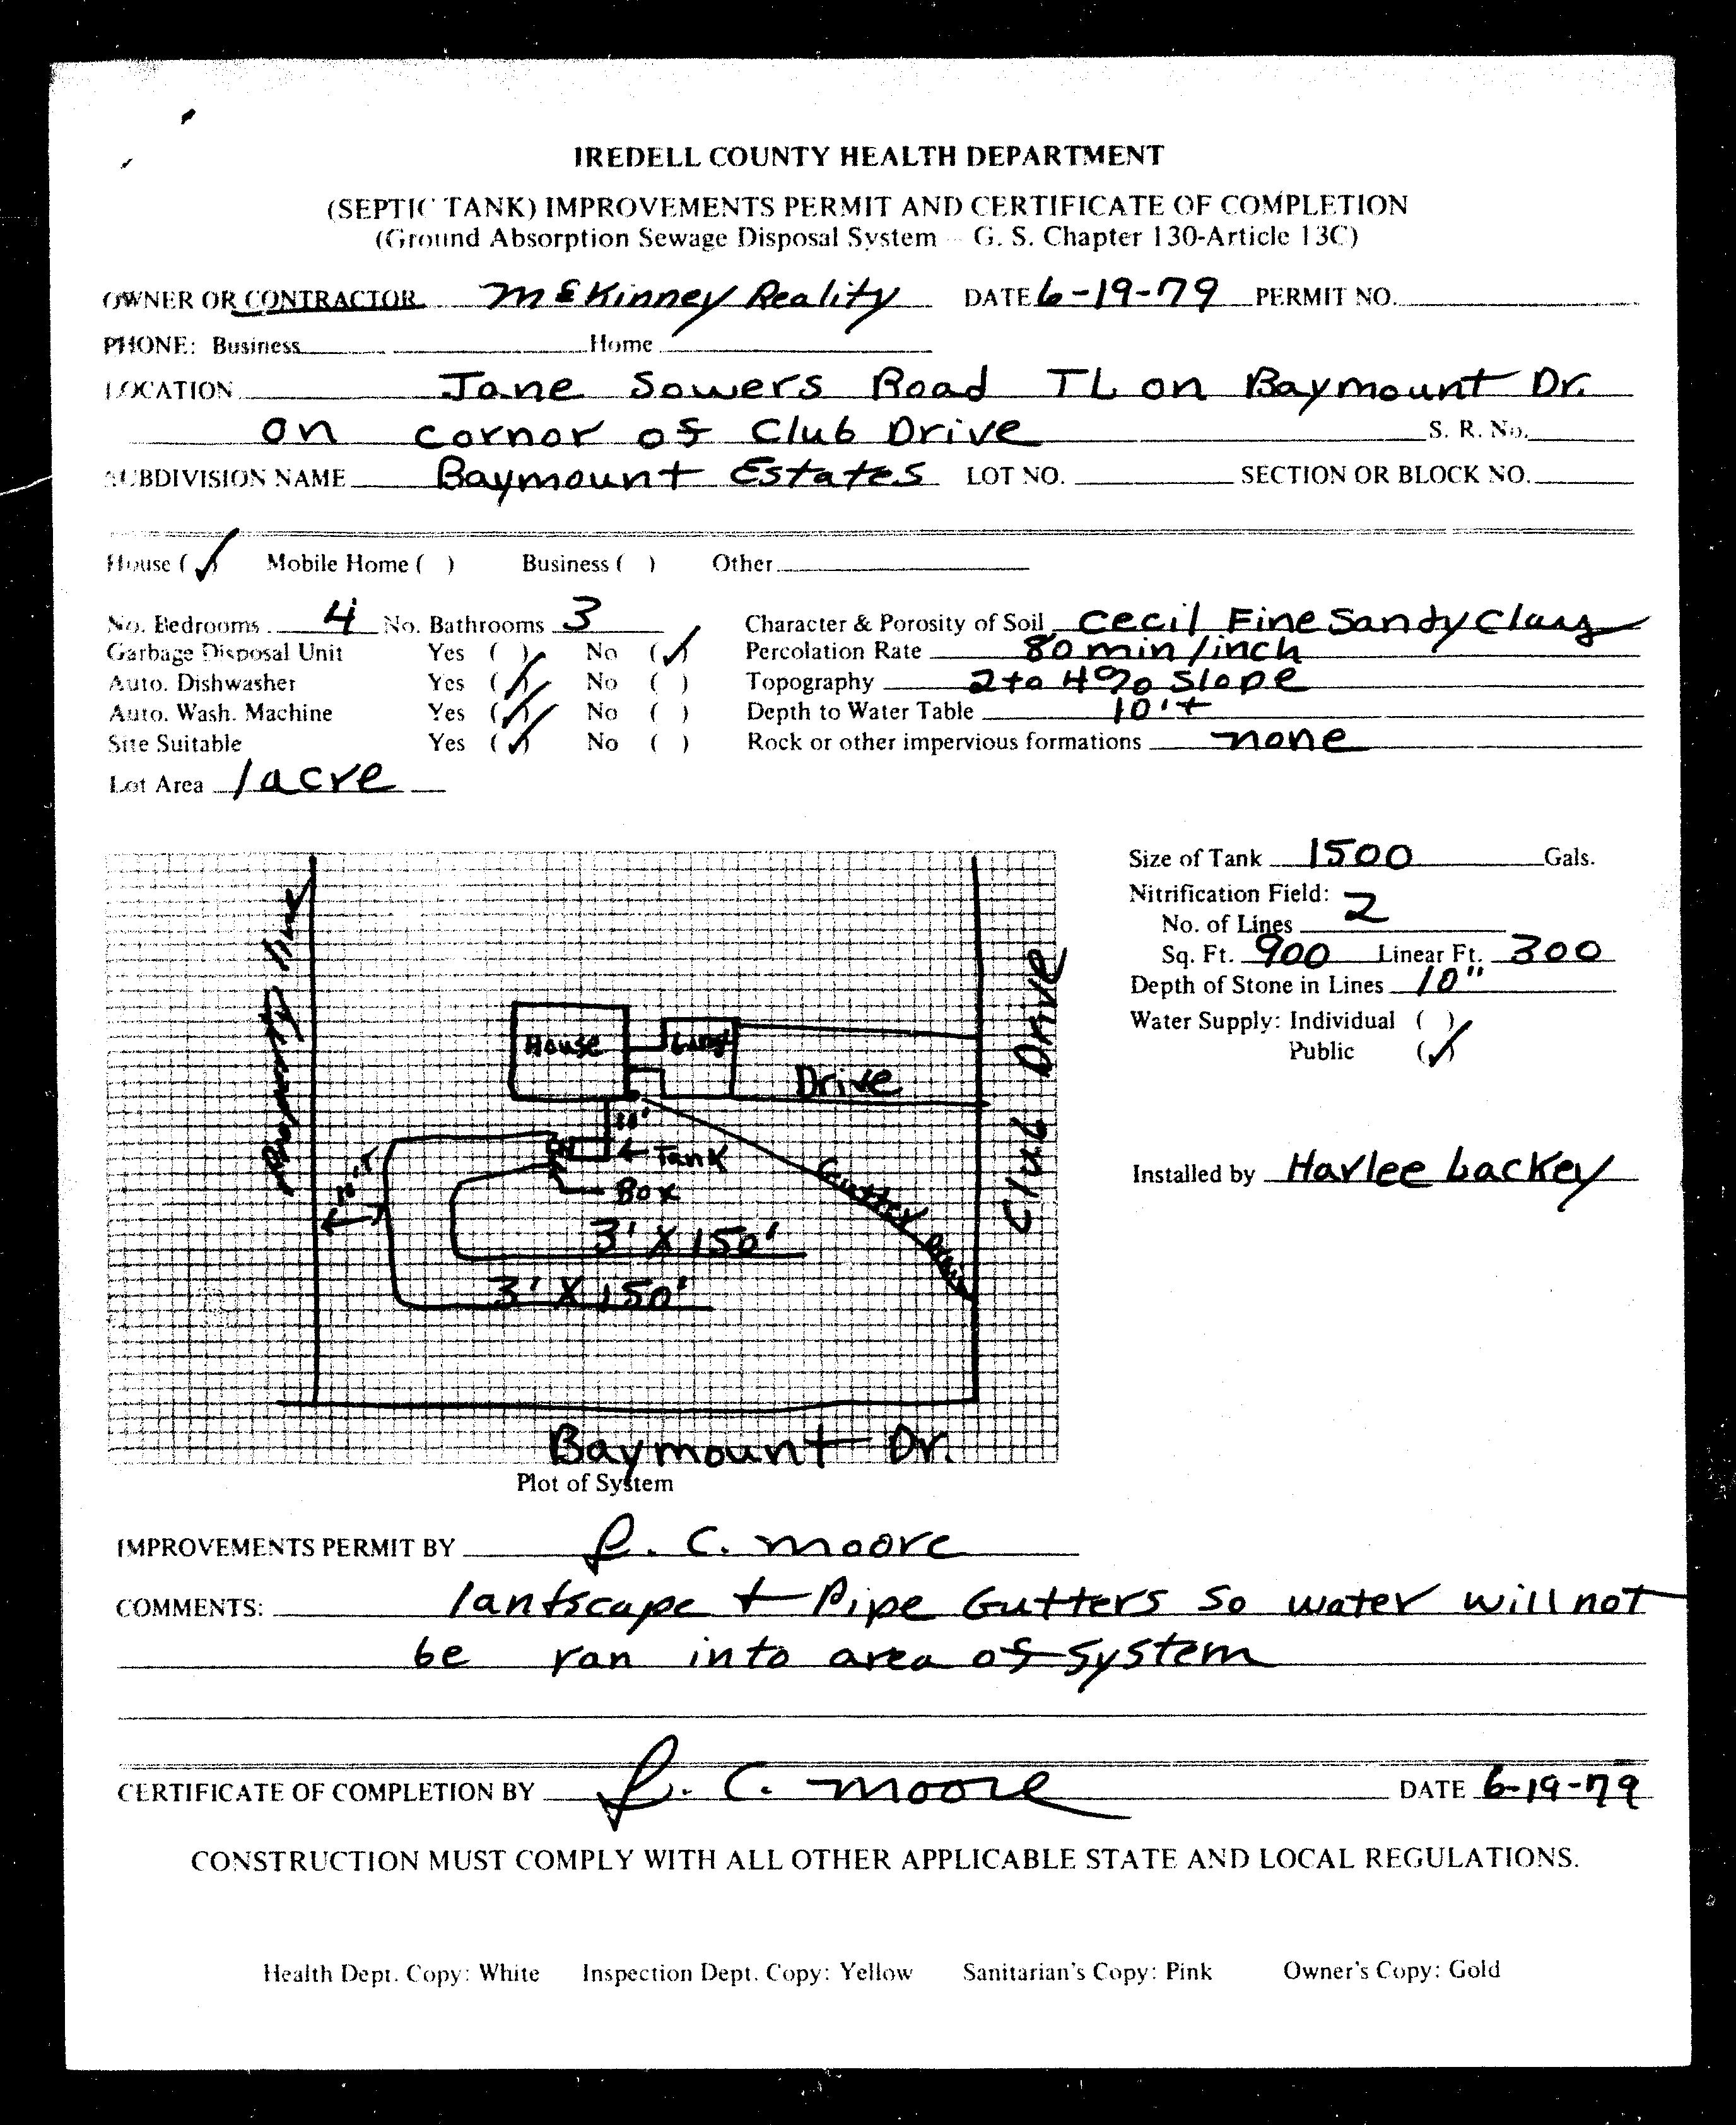 IREDELL COUNTY HEALTH DEPARTMENT
(SEPTIC TANK) IMPROVEMENTS PERMIT AND CERTIFICATE OF COMPLETION
(Ground Absorption Sewage Disposal System - G. S. Chapter 130-Article 13C)
OWNER OR CONTRACTOR McKinney Reality DATE 6-19-79 PERMIT NO.
PHONE: Business Home
LOCATION Jane Sowers Road TL on Baymount Dr.
on cornor of Club Drive S. R. No.
SUBDIVISION NAME Baymount Estates LOT NO. SECTION OR BLOCK NO.
House (✓) Mobile Home ( ) Business ( ) Other
No. Bedrooms 4 No. Bathrooms 3 Character & Porosity of Soil Cecil Fine Sandy Clay
Garbage Disposal Unit Yes ( ) No (✓) Percolation Rate 80 min/inch
Auto. Dishwasher Yes (✓) No ( ) Topography 2 to 4% Slope
Auto. Wash. Machine Yes (✓) No ( ) Depth to Water Table 10'+
Site Suitable Yes (✓) No ( ) Rock or other impervious formations none
Lot Area 1 acre
Size of Tank 1500 Gals.
Nitrification Field:
No. of Lines 2
Sq. Ft. 900 Linear Ft. 300
Depth of Stone in Lines 10"
Water Supply: Individual ( )
Public (✓)
Installed by Harlee Lackey
Property line
House
Drive
Club Drive
10'
Tank
Box
Gutter Drain
3' X 150'
3' X 150'
Baymount Dr.
Plot of System
IMPROVEMENTS PERMIT BY R. C. Moore
COMMENTS: lantscape + Pipe Gutters so water will not
be ran into area of system
CERTIFICATE OF COMPLETION BY R. C. Moore DATE 6-19-79
CONSTRUCTION MUST COMPLY WITH ALL OTHER APPLICABLE STATE AND LOCAL REGULATIONS.
Health Dept. Copy: White Inspection Dept. Copy: Yellow Sanitarian's Copy: Pink Owner's Copy: Gold